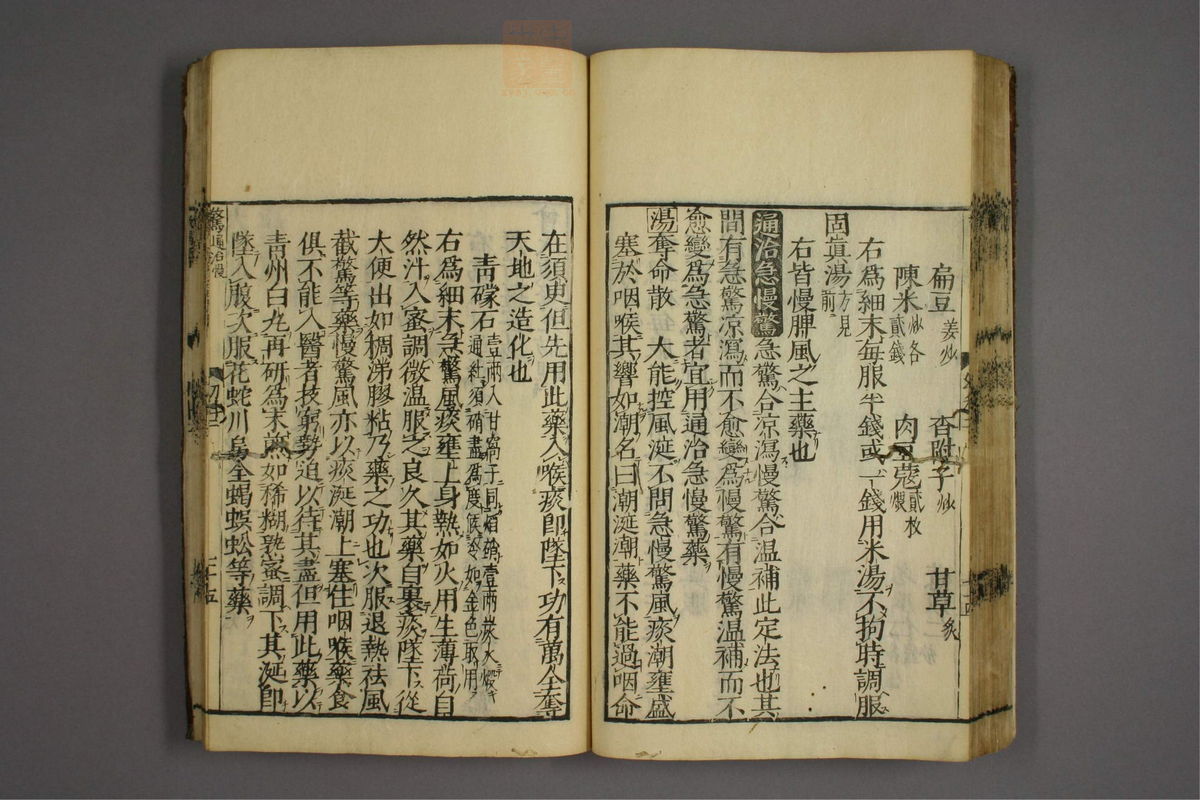 扁豆姜炒 香附子炒 甘草炙
陳米炒各貳錢 肉豆蔻貳枚煨
右爲細末每服半錢或一錢用米湯不拘時調服
固眞湯方見前
右皆慢脾風之主藥也
通治急慢驚急驚合凉瀉慢驚合温補此定法也其
間有急驚凉瀉而不愈變爲慢驚有慢驚温補而不
愈變爲急驚者宜用通治急慢驚藥
湯奪命散 大能控風涎不問急慢驚風痰潮壅盛
塞於咽喉其響如潮名曰潮涎潮藥不能過咽命
在須臾但先用此藥入喉痰即墜下功有萬全奪
天地之造化也
青礞石壹兩入甘窩子同焰硝壹兩炭火煆通紅須硝盡爲度候冷如金色取用
右爲細末急驚風痰壅上身熱如火用生薄荷自
然汁入蜜調微温服之良久其藥自裹痰墜下從
大便出如稠涕膠粘乃藥之功也次服退熱祛風
截驚等藥慢驚風亦以痰涎潮上塞住咽喉藥食
俱不能入醫者技窮勢迫以待其盡但用此藥以
靑州白丸再研爲末煎如稀糊熟蜜調下其涎即
墜入腹次服花蛇川烏全蝎蜈蚣等藥
驚通治慢